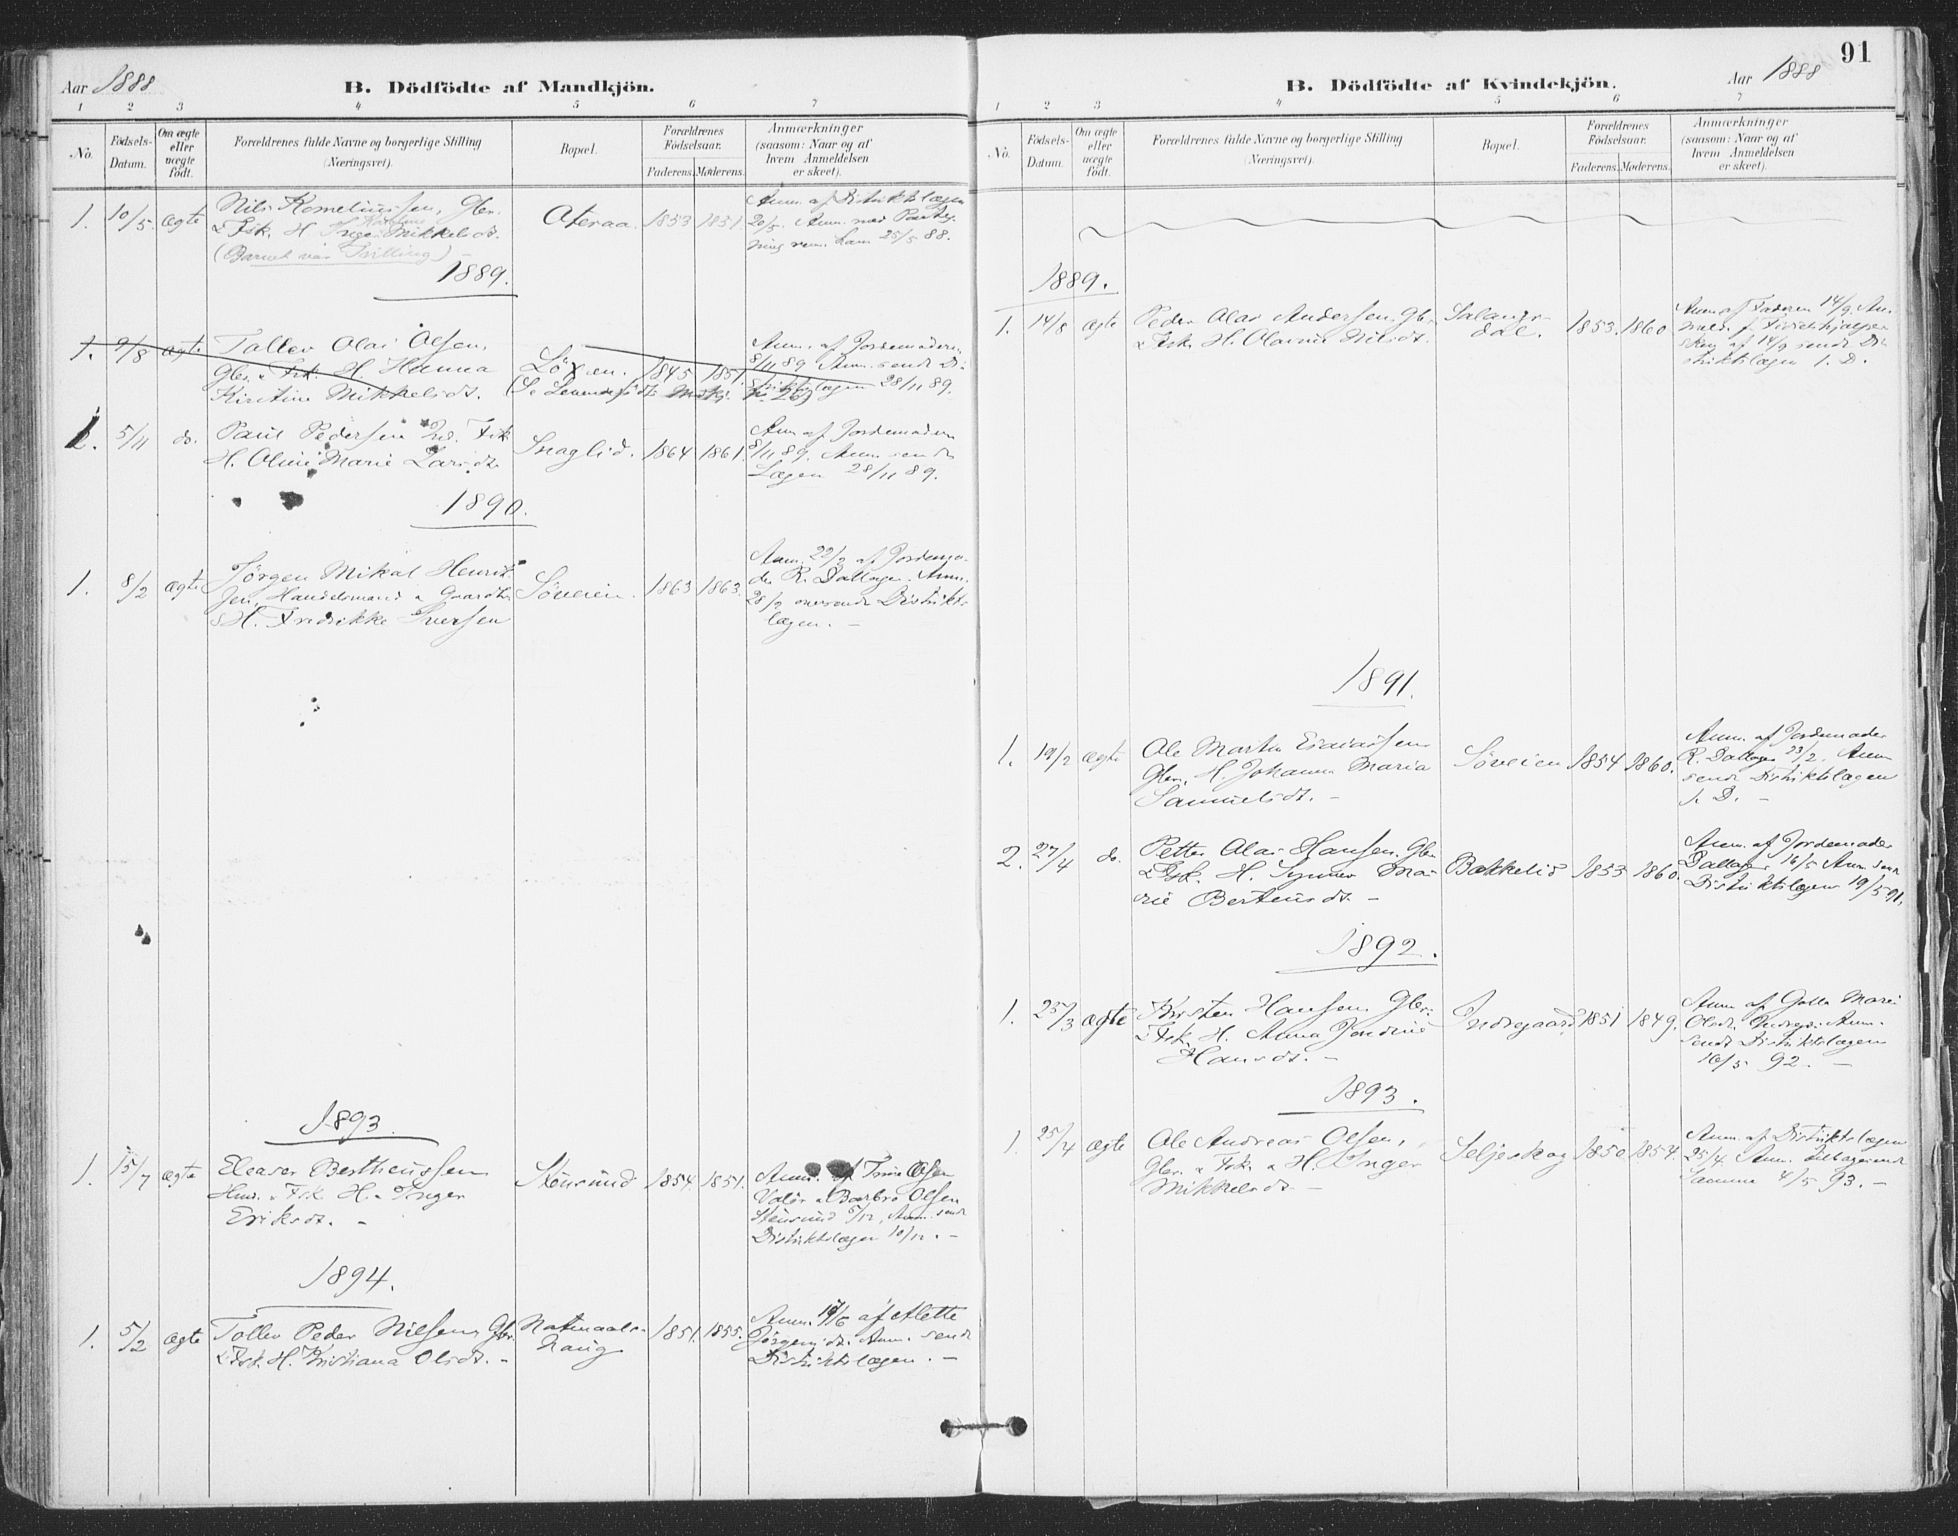 Aar 1888
B. Dödfödte af Mandkjön.
1 2 3 4 5 6 7
No.
Födsels-
Datum.
Om ægte
eller
uægte
födt.
Forældrenes fulde Navne og borgerlige Stilling
(Næringsvei).
Bopæl.
Forældrenes
Födselsaar.
Faderens. Moderens.
Anmærkninger
(saasom: Naar og af
hvem Anmeldelsen
er skeet).
1. 10/5. ægte
Nils Korneliussen, Gbr.
& Fsk. H. Inger Mikkelsdt.
(Barnet var Tvilling)
1853 1851.
Anm. af Distriktslægen
20/5.
25/5 88.
1889.
1. 9/8 ægte
Tollev Olai Olsen,
Gbr. & Fsk. H. Hanna
Kirstine Mikkelsdt.
1845 1851.
Anm. af Jordemoderen
8/11 89 Anm. sendt Di-
striktslægen 28/11 89.
2. 5/11 do.
Paul Pedersen Ind. Fsk
H. Oline Marie Larsdt.
Snaglid. 1864 1861.
Anm af Jordemoderen
8/11 89. Anm. sendt
Lægen 28/11 89.
1890.
1. 8/2 ægte
Jörgen Mikal Henrik-
sen, Handelsmand & Gaardbr.
H. Fredrikke Iversen
Söveien. 1863 1863.
Anm. 22/2 af Jordemo-
der R. Dallager. Anm.
28/2 oversendt Distrikts
lægen. -
1893.
1. 15/7 ægte
Eleaser Bertheussen
Hmd. & Fsk H. Inger
Eriksdt. -
Stensund 1854. 1851.
Anm. af Trine Olsen
Valör & Barbro Olsen
Stensund 5/12, Anm. sendt
Distriktslægen 10/12. -
1894.
1. 5/2 ægte
Tollev Peder Nilsen, Gbr.
& Fsk. H. Kristiana Olsdt. -
Natmaals-
haug
1851. 1855.
Anm. af Alette
Jörgensdt. Anm. sendt
Distriktslægen. -
91
B. Dödfödte af Kvindekjön.
Aar 1888
1 2 3 4 5 6 7
No.
Födsels-
Datum.
Om ægte
eller
uægte
födt.
Forældrenes fulde Navne og borgerlige Stilling
(Næringsvei).
Bopæl.
Forældrenes
Födselsaar.
Faderens. Moderens.
Anmærkninger
(saasom: Naar og af
hvem Anmeldelsen
er skeet).
1889.
1. 14/8 ægte
Peder Olai Andersen, Gbr
& Fsk. H. Olava Nilsdt.
Salangs-
dal.
1853. 1860
Anm af Faderen 14/9 An-
14/9 sendt Di-
striktslægen s. D.
1891.
1. 19/2 ægte
Ole Martin Esaiassen
Gbr. H. Johanna Maria
Samuelsdt. -
Söveien 1854 1860.
Anm. af Jordemoder
R. Dallager 23/2. Anm
sendt Distriktslægen
s. D. -
2. 27/4 do.
Petter Olai Hansen. Gbr
& Fsk. H. Synnev Ma-
rie Berteusdt. -
Bakkelid 1853 1860.
Anm. af Jordemoder
Dallager 16/5 Anm. sendt
Distriktslægen 19/5 91.
1892.
1. 25/3 ægte
Kristen Hansen, Gbr.
& Fsk. H. Anna Jondine
Hansdt. -
Indregaard 1851 1849.
Anm af Golla Marie
Olsdt. Indreg. Anm.
sendt Distriktslægen
16/5 92. -
1893.
1. 25/4 ægte
Ole Andreas Olsen,
Gbr. & Fsk. & H. Inger
Mikkelsdt. -
Seljeskog 1850 1854.
Anm. af Distriktslægen
25/4 Anm. tilbagesendt
Samme 4/5 93. -